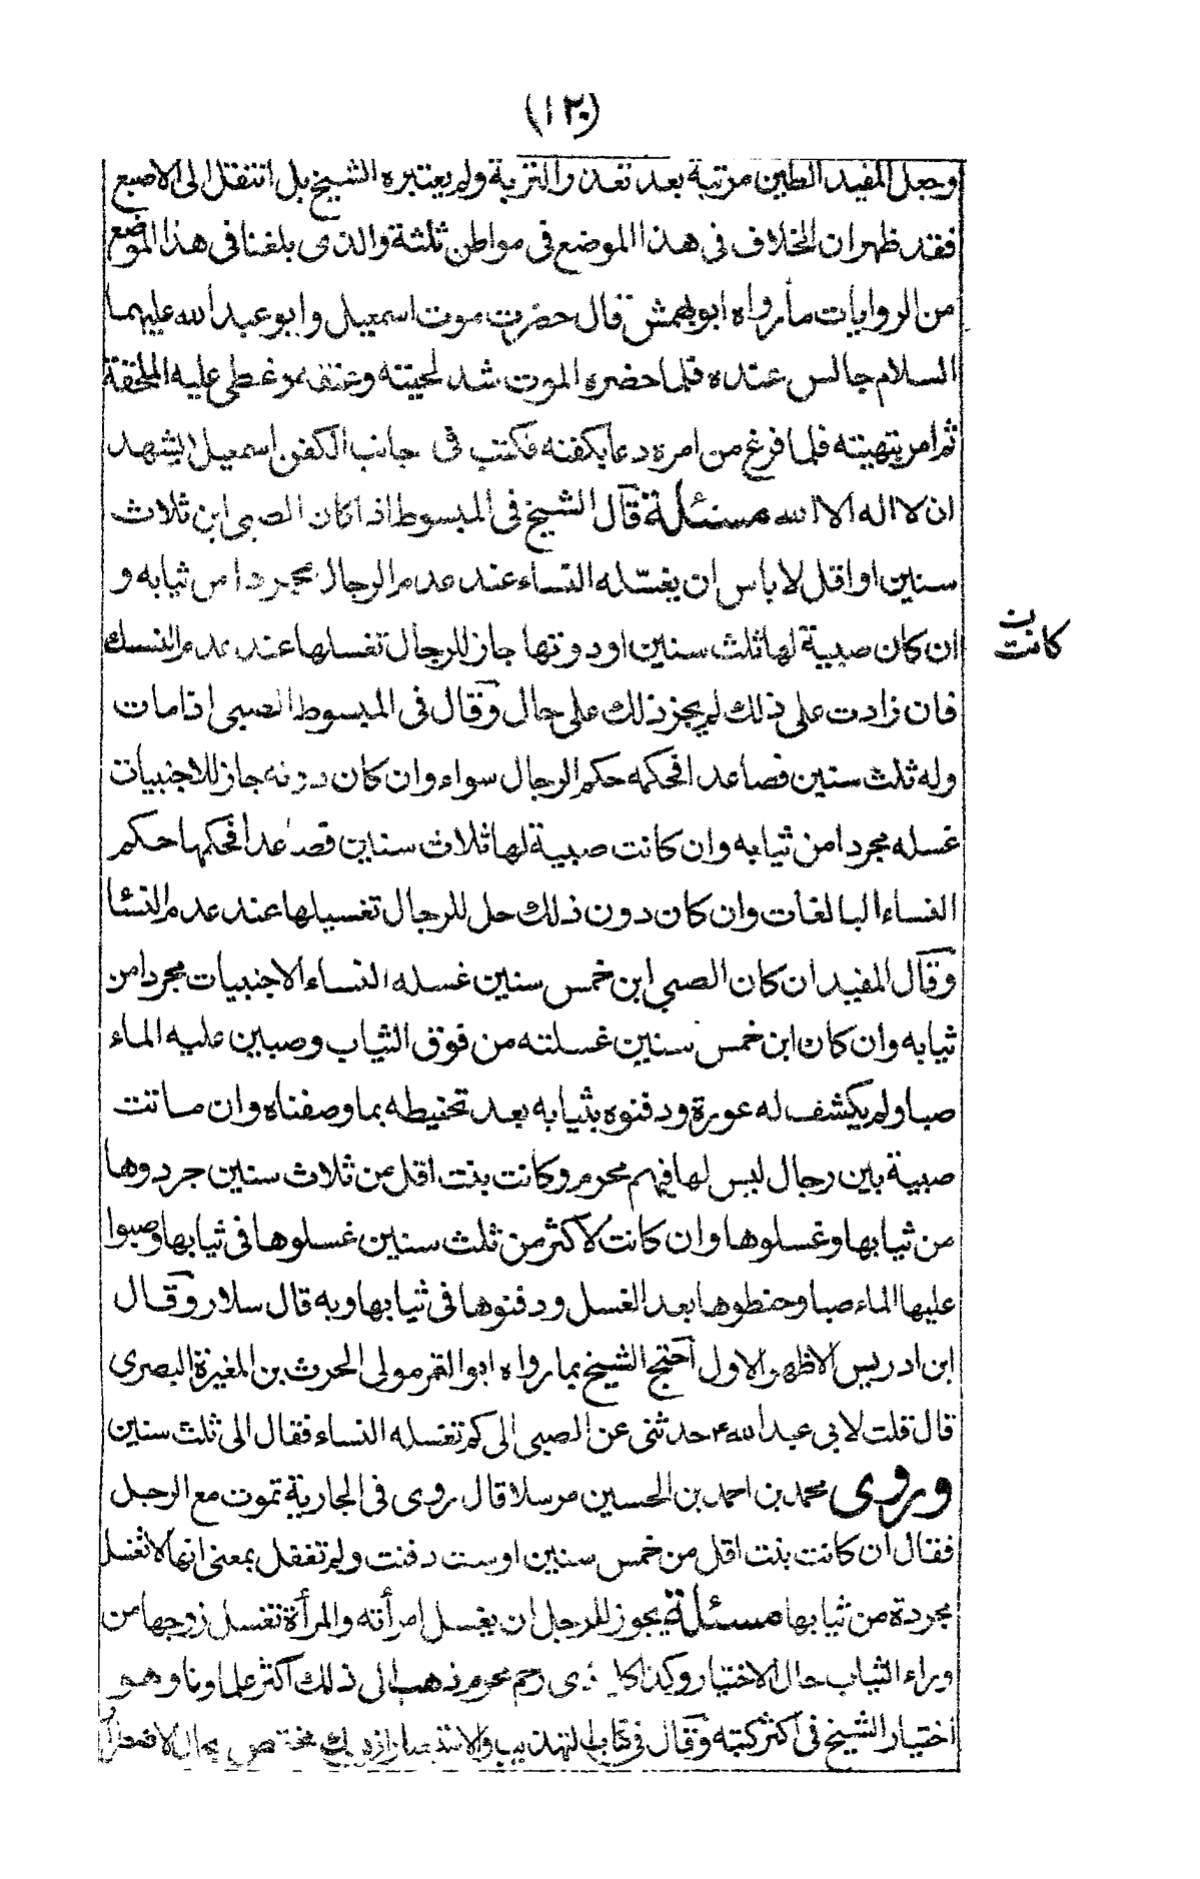 (١٢٠)
وجعل المفيد الطين مرتبة بعد تعذر التربة ولم يعتبره الشيخ بل انتقل الى الاصبع
فقد ظهر ان الخلاف فى هذا الموضع فى مواطن ثلثة والذى بلغنا فى هذا الموضع
من الروايات ما رواه ابو كهمش قال حضرت موت اسمعيل وابو عبد الله عليهما
السلام جالس عنده فلما حضره الموت شد لحيته وغمضه وغطى عليه الملحفة
ثم امر بتهيئته فلما فرغ من امره دعا بكفنه فكتب فى جانب الكفن اسمعيل يشهد
ان لا اله الا الله مسئلة قال الشيخ فى المبسوط اذا كان الصبى ابن ثلاث
سنين او اقل لا باس ان يغسله النساء عند عدم الرجال مجردا من ثيابه و
ان كان صبية لها ثلث سنين او دونها جاز للرجال تغسلها عند عدم النساء
كانت ن
فان زادت على ذلك لم يجز ذلك على حال وقال فى المبسوط الصبى اذا مات
وله ثلث سنين فصاعدا فحكمه حكم الرجال سواء وان كان دونه جاز للاجنبيات
غسله مجردا من ثيابه وان كانت صبية لها ثلاث سنين فصاعدا فحكمها حكم
النساء البالغات وان كان دون ذلك حل للرجال تغسيلها عند عدم النساء
وقال المفيد ان كان الصبي ابن خمس سنين غسله النساء الاجنبيات مجردا من
ثيابه وان كان ابن خمس سنين غسلته من فوق الثياب وصبين عليه الماء
صبا ولم يكشف له عورة ودفنوه بثيابه بعد تحنيطه بما وصفناه وان ماتت
صبية بين رجال ليس لها فيهم محرم وكانت بنت اقل من ثلاث سنين جردوها
من ثيابها وغسلوها وان كانت لاكثر من ثلث سنين غسلوها فى ثيابها وصبوا
عليها الماء صبا وحنطوها بعد الغسل ودفنوها فى ثيابها وبه قال سلار وقال
ابن ادريس الاظهر الاول احتج الشيخ بما رواه ابو النمر مولى الحرث بن المغيرة البصرى
قال قلت لابى عبد الله ع حدثنى عن الصبى الى كم تغسله النساء فقال الى ثلث سنين
وروى محمد بن احمد بن الحسين مرسلا قال روى فى الجارية تموت مع الرجل
فقال ان كانت بنت اقل من خمس سنين او ست دفنت ولم تغفل بمعنى انها لا تغسل
مجردة من ثيابها مسئلة يجوز للرجل ان يغسل امرأته والمرأة تغسل زوجها من
وراء الثياب حال الاختيار وكذا كل ذى رحم محرم ذهب الى ذلك اكثر علماونا وهو
اختيار الشيخ فى اكثر كتبه وقال فى كتابى التهذيب والاستبصار ان ذلك مختص بحال الاضطرار